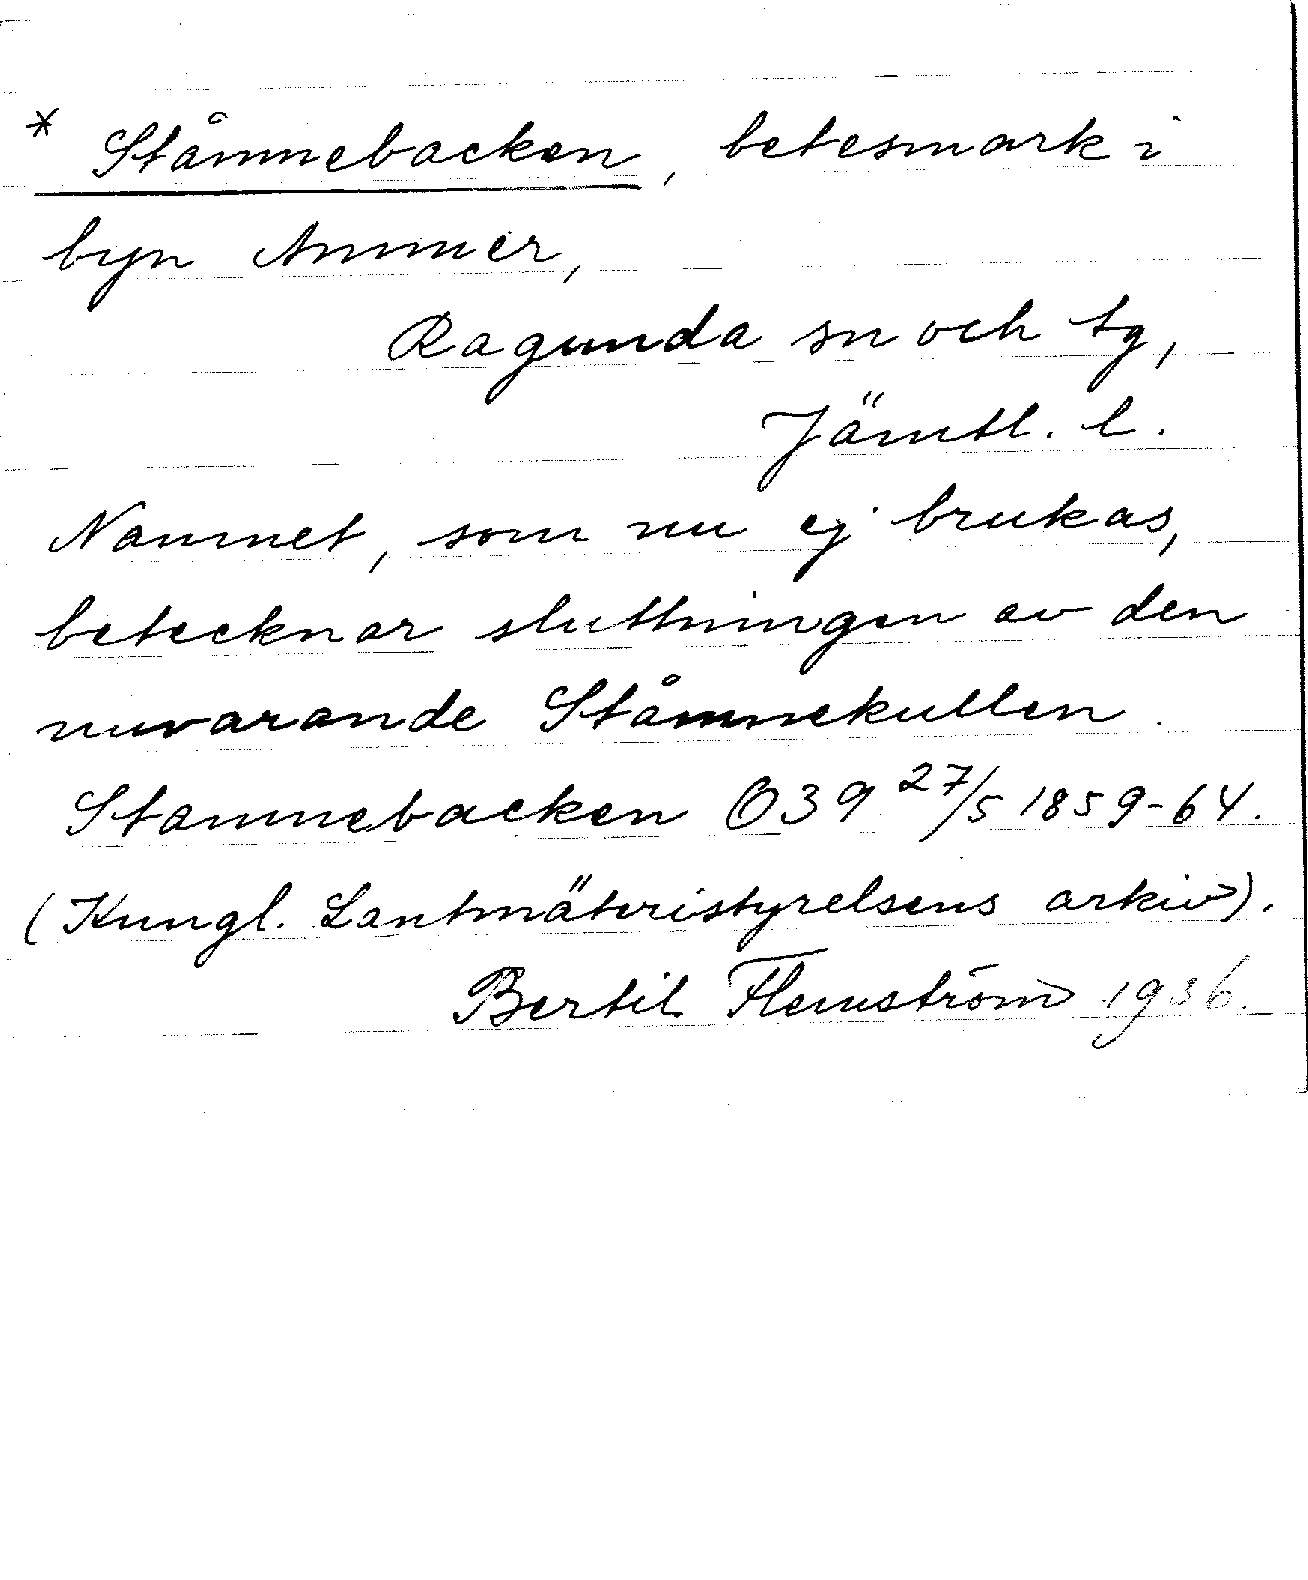 * Ståmnebacken, betesmark i
byn Ammer,
Ragunda sn och tg,
Jämtl. l.
Namnet, som nu ej brukas,
betecknar sluttningen av den
nuvarande Ståmnekullen.
Stamnebacken O39 27/5 1859-64.
(Kungl. Lantmäteristyrelsens arkiv).
Bertil Flemström 1936.